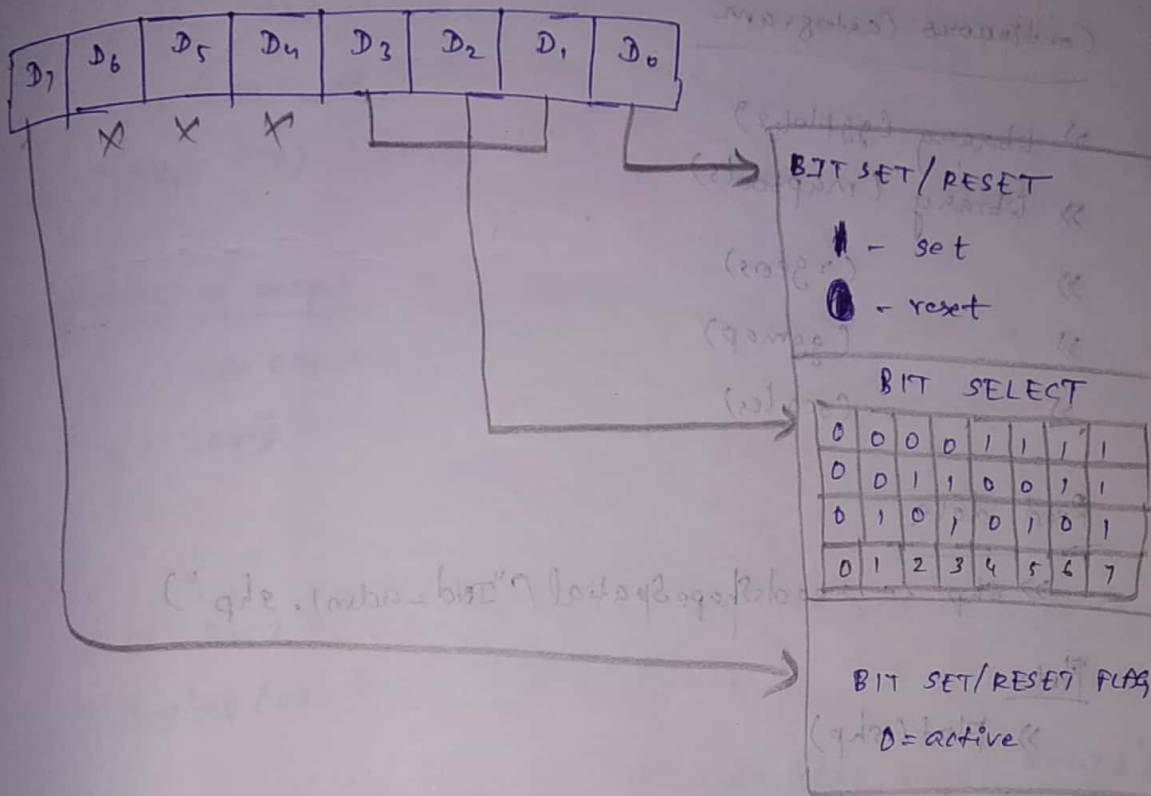 D7 D6 D5 D4 D3 D2 D1 D0
X X X
BIT SET/RESET
1 - set
0 - reset
BIT SELECT
0 0 0 0 1 1 1 1
0 0 1 1 0 0 1 1
0 1 0 1 0 1 0 1
0 1 2 3 4 5 6 7
BIT SET/RESET FLAG
0 = active